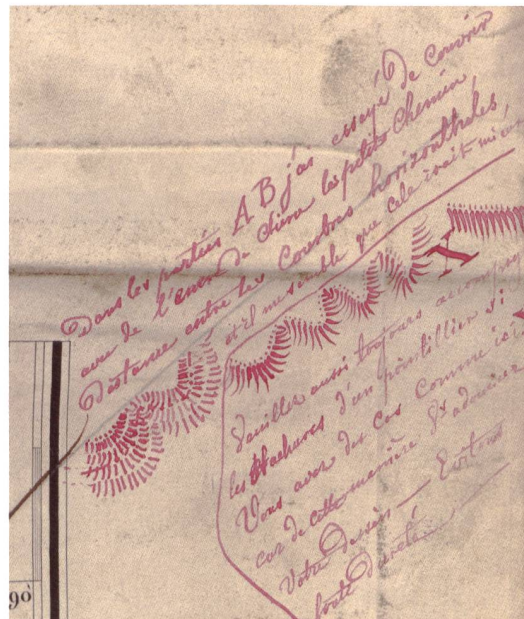 Dans les parties A B j'ai essayé de Couvrir
avec de l'encre de chine les petits Chemin,
Distance entre les Courbes horizonthales,
et il me semble que cela irait mieu
X
Veuillez aussi toujours accompag
les Hachures d'un pointillier si
Vous avez des cas Comme ici
car de cette manière
Votre dessin — Evitons
toute dureté
90